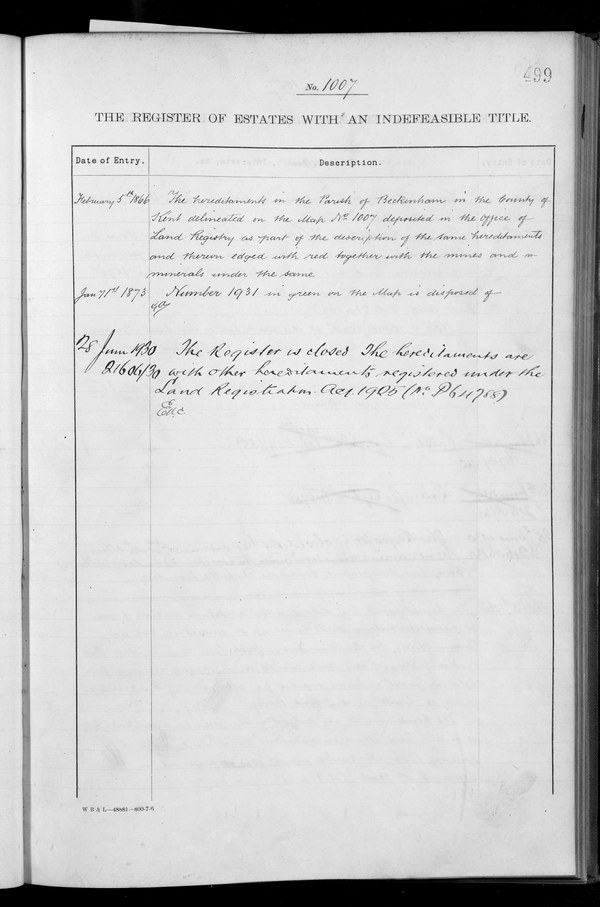 499
No. 1007
THE REGISTER OF ESTATES WITH AN INDEFEASIBLE TITLE.
Date of Entry. Description.
February 5th 1866 The hereditaments in the Parish of Beckenham in the County of
Kent delineated on the Map No 1007 deposited in the Office of
Land Registry as part of the description of the same hereditaments
and thereon edged with red together with the mines and
minerals under the same
Jany 1st 1873 Number 1931 in green on the Map is disposed of
28 June 1930 The Register is closed The hereditaments are
21606/30 with other hereditaments registered under the
Land Registration Act. 1925 (No P64788)
W B & L—48881—800-7-6